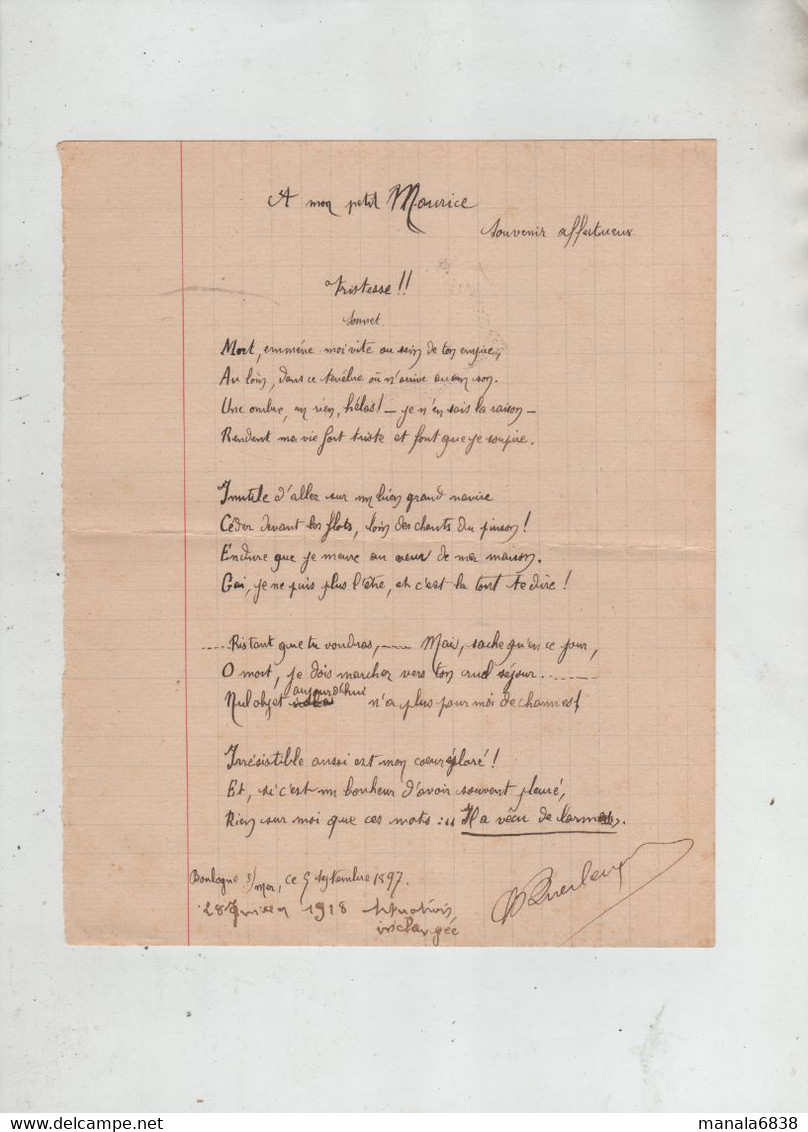 A mon petit Maurice
Souvenir affectueux
Tristesse !!
Sonnet
Mort, emmène moi vite au sein de ton empire,
Au loin, dans ce tenèbre où n'arrive aucun son.
Une ombre, un rien, hélas! – je n'en sais la raison –
Rendent ma vie fort triste et font que je soupire.
Inutile d'aller sur un bien grand navire
Céder devant les flots, loin des chants du pinson!
Endure que je meure au cœur de ma maison.
Gai, je ne puis plus l'être, et c'est là tout te dire!
..... Ris tant que tu voudras, —— Mais, sache qu'en ce jour,
O mort, je dois marcher vers ton cruel séjour........
Nul objet aujourd'hui n'a plus pour moi de charmes!
Irrésistible aussi est mon cœur éploré!
Et, si c'est un bonheur d'avoir souvent pleuré,
Rien sur moi que ces mots: "Il a vécu de larmes".
Boulogne s/mer, ce 5 septembre 1897.
28 1918
manala6838